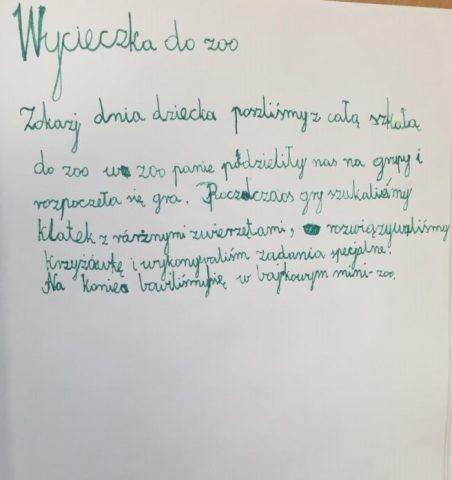 Wycieczka do zoo
Zokazj dnia dziecka poszliśmy z całą szkołą
do zoo w zoo panie podzieliły nas na grupy i
rozpoczeła się gra. Poczdczaos gry szukaliśmy
klatek z różnymi zwierzętami, rozwiązywaliśmy
krzyżówkę i wykonywaliśm zadania specjalne.
Na koniec bawiliśmysię w bajkowym mini-zoo.